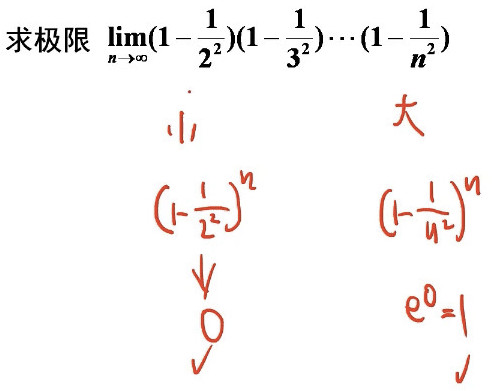 求极限 lim n→∞ (1 - 1/2²)(1 - 1/3²)⋯(1 - 1/n²)
小 大
(1 - 1/2²)ⁿ (1 - 1/n²)ⁿ
↓
0 e⁰ = 1
✓ ✓